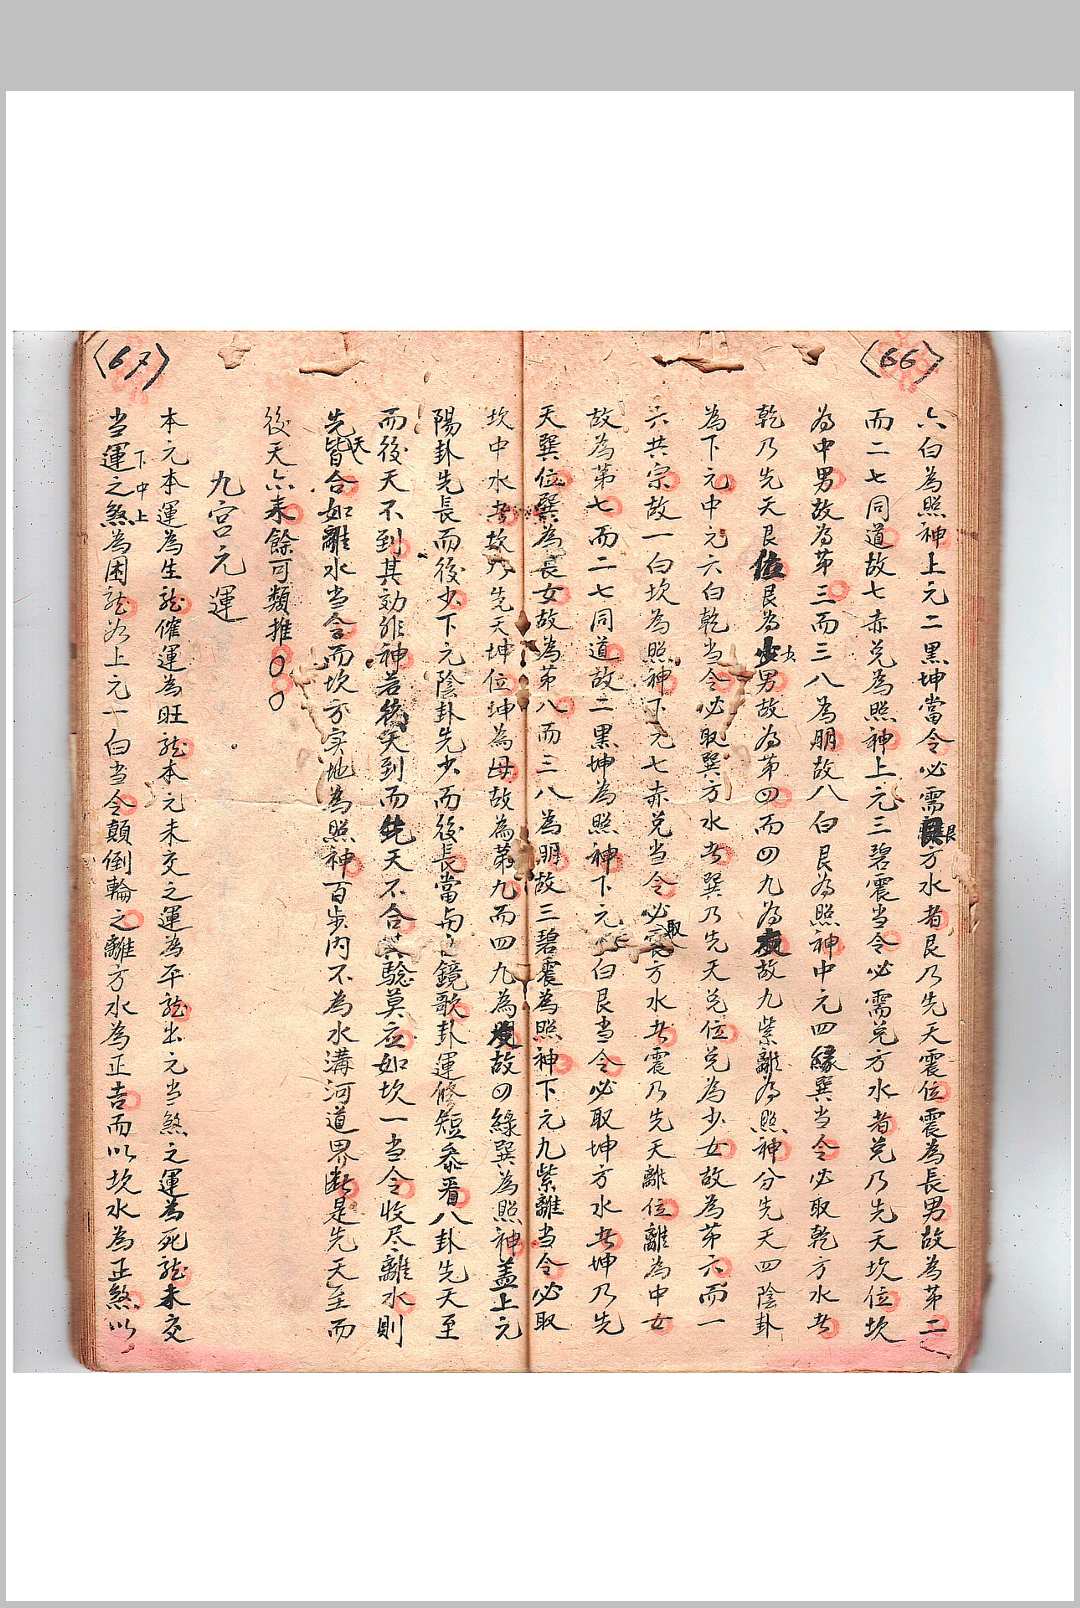 (66)
六白為照神上元二黑坤當令必需艮方水者艮乃先天震位震為長男故為苐二
而二七同道故七赤兑為照神上元三碧震当令必需兑方水者兑乃先天坎位坎
為中男故為苐三而三八為朋故八白艮為照神中元四緑巽当令必取乾方水者
乾乃先天艮位艮為少男故為苐四而四九為友故九紫離為照神分先天四陰卦
為下元中元六白乾当令必取巽方水者巽乃先天兑位兑為少女故為苐六而一
六共宗故一白坎為照神下元七赤兑当令必取震方水者震乃先天離位離為中女
故為苐七而二七同道故二黑坤為照神下元八白艮当令必取坤方水者坤乃先
天巽位巽為長女故為苐八而三八為朋故三碧震為照神下元九紫離当令必取
坎中水者坎乃先天坤位坤為母故為苐九而四九為友故四綠巽為照神盖上元
陽卦先長而後少下元陰卦先少而後長當与鏡歌卦運修短參看八卦先天至
而後天不到其効非神若後天到而先天不合其驗莫应如坎一当令收尽離水則
先天皆合如離水当令而坎方実地為照神百步内不為水溝河道界断是先天至而
後天亦来餘可類推〇〇
九宮元運
本元本運為生龍催運為旺龍本元未交之運為平龍出元当煞之運為死龍未交
下中上
当運之煞為困龍如上元一白当令顛倒輪之離方水為正吉而以坎水為正煞以
(67)